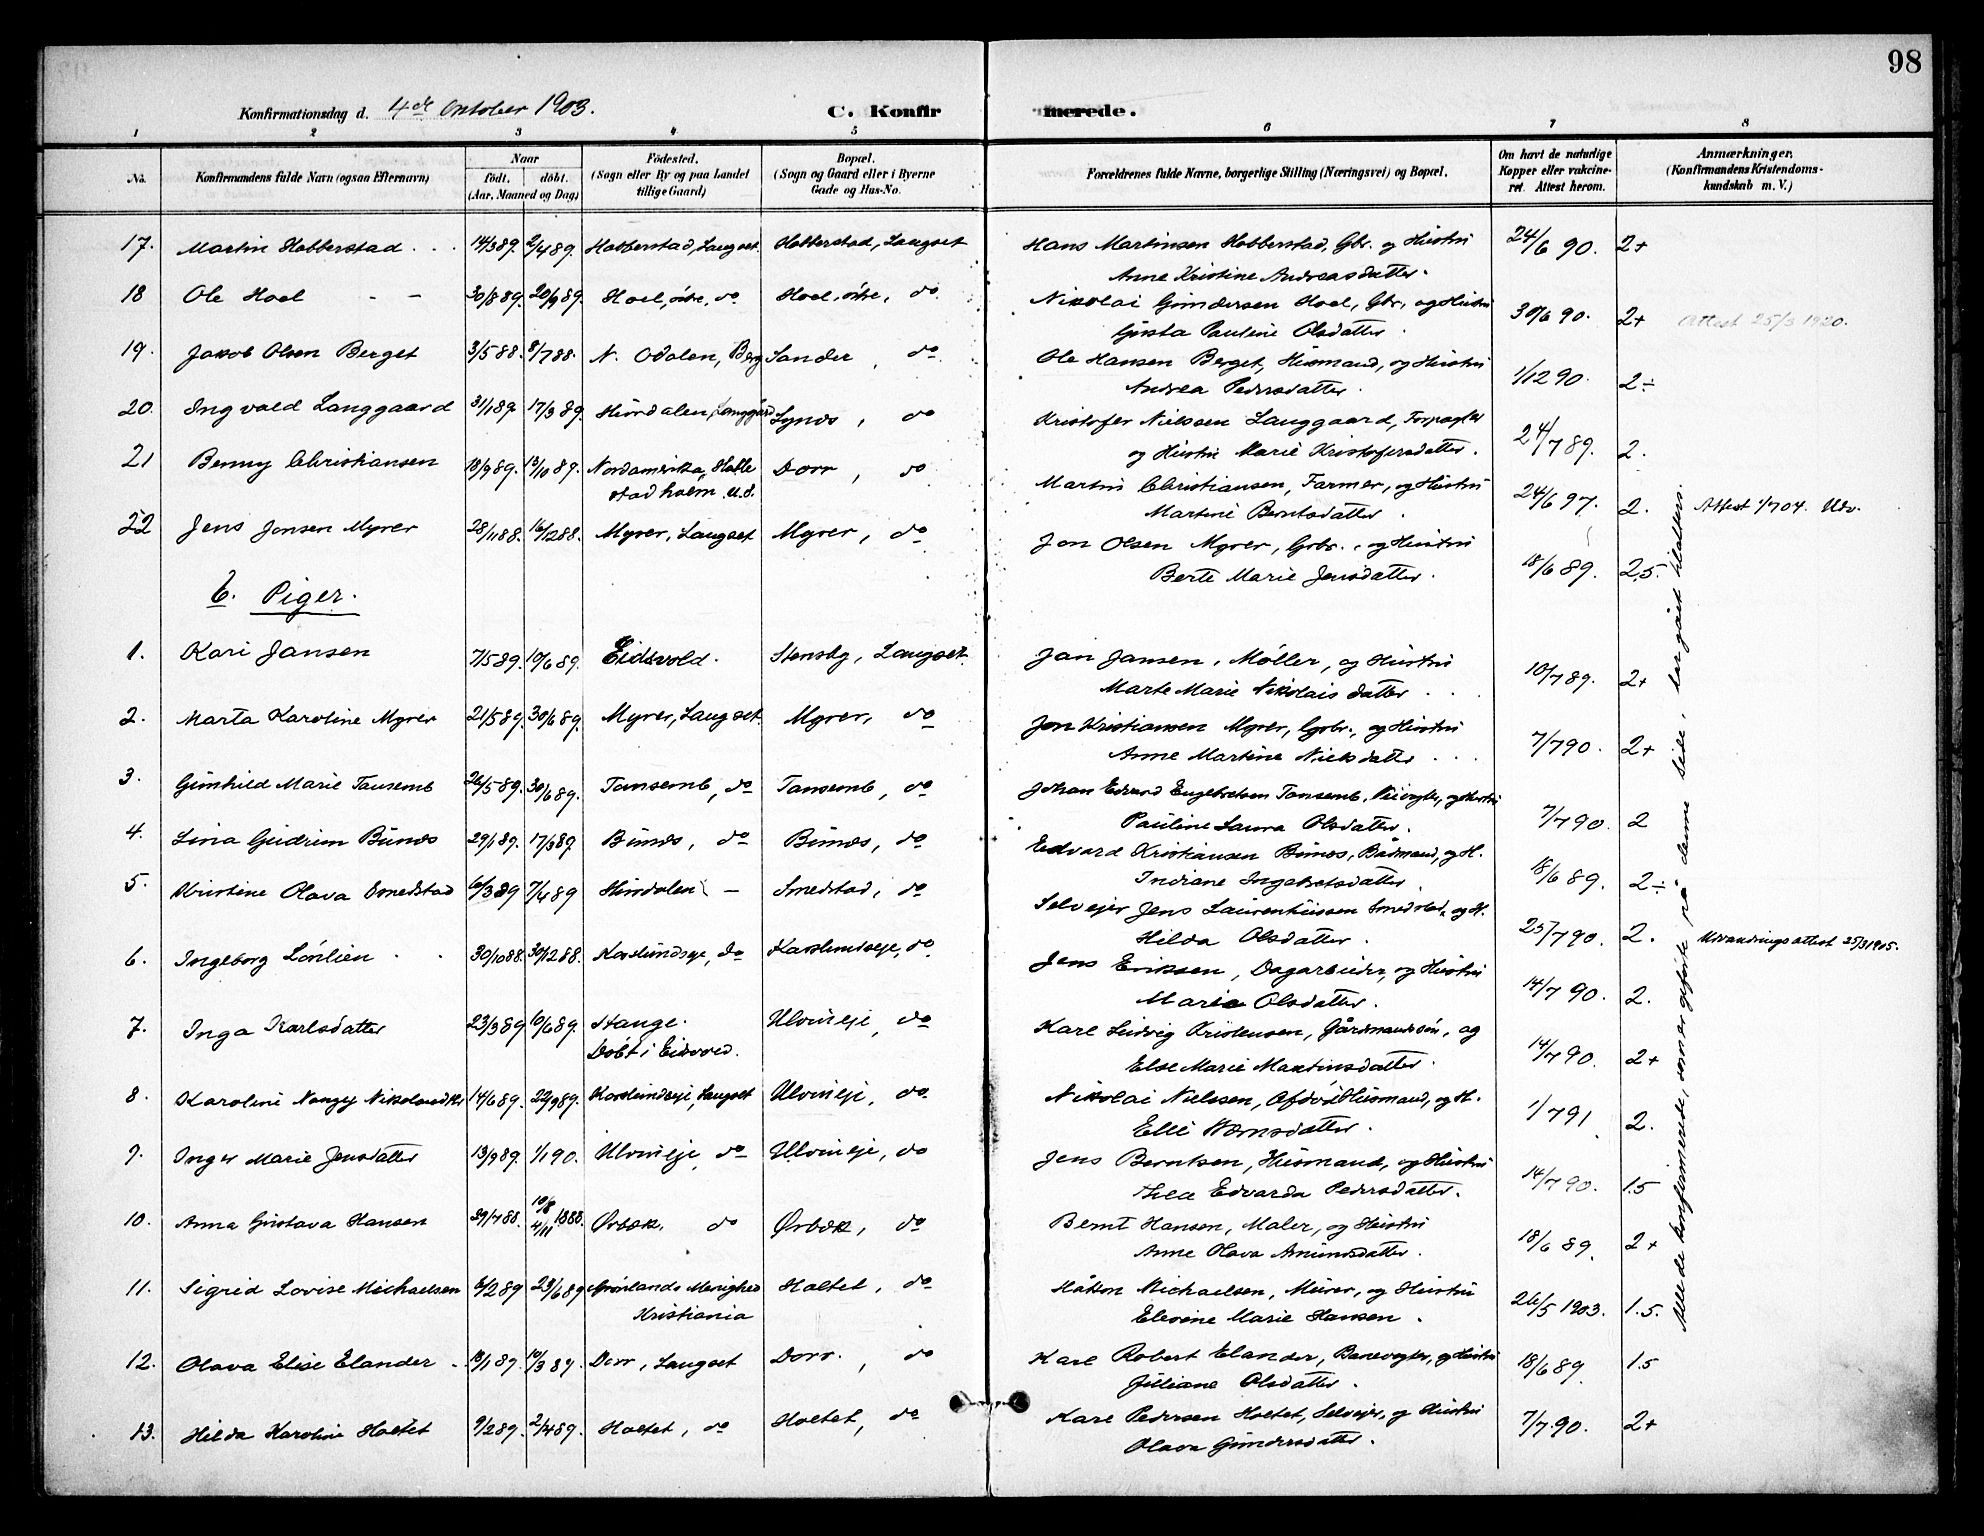 98
Konfirmationsdag d. 4de Oktober 1903. C. Konfirmerede.
1 2 3 4 5 6 7 8
No. Konfirmandens fulde Navn (ogsaa Efternavn) Naar født. døbt. (Aar, Maaned og Dag) Fødested. (Sogn eller By og paa Landet tillige Gaard) Bopæl. (Sogn og Gaard eller i Byerne Gade og Hus-No. Forældrenes fulde Navne, borgerlige Stilling (Næringsvei) og Bopæl. Om havt de naturlige Kopper eller vakcineret. Attest herom. Anmærkninger. (Konfirmandens Kristendomskundskab m. V.)
17. Martin Habberstad 14/3 89. 2/4 89. Habberstad, Langset. Habberstad, Langset Hans Martinsen Habberstad, Gbr. og Hustru 24/6 90. 2+
Anne Kristine Andreasdatter.
18 Ole Hoel 30/8 89. 20/9 89. Hoel, østre, do Hoel, østre, do. Nikolai Gundersen Hoel, Gbr., og Hustru 30/6 90. 2+ Attest 25/3 1920.
Gusta Pauline Olsdatter.
19. Jakob Olsen Berget 3/5 88. 8/7 88. N. Odalen, Berg Sander, do Ole Hansen Berget, Husmand, og Hustru 1/12 90. 2÷
Andrea Pedersdatter.
20. Ingvald Langgaard 31/1 89. 17/3 89. Hurdalen, Langgård Lynæs, do Kristofer Nielsen Langgaard, Forpagter 24/7 89. 2.
og Hustru Marie Kristofersdatter.
21 Benny Christiansen 18/9 89. 13/10 89. Nordamerika, Halle Dorr, do Martin Christiansen, Farmer, og Hustru 24/6 97. 2. Attest 1/7 04. Udv.
stad holm u.d. Martine Berntsdatter.
22 Jens Jonsen Myrer 28/11 88. 16/12 88. Myrer, Langset Myrer, do Jon Olsen Myrer, Grbr., og Hustru 18/6 89. 2,5.
Berte Marie Jensdatter.
b. Piger.
1. Kari Jansen 7/5 89. 10/6 89. Eidsvold. Stensby, Langset. Jan Jansen, Møller, og Hustru 10/7 89. 2+
Marte Marie Nikolaisdatter
2. Marta Karoline Myrer 21/5 89. 30/6 89. Myrer, Langset. Myrer, do Jon Kristiansen Myrer, Grbr., og Hustru 7/7 90. 2+
Anne Martine Nielsdatter
3. Gunhild Marie Tansemb 26/5 89. 30/6 89. Tansemb, do Tansemb, do Johan Edvard Engebretsen Tansemb, Veivogter, og Hustru 7/7 90. 2
Pauline Laura Olsdatter.
4. Lina Gudrun Bunæs 29/1 89. 17/3 89 Bunæs, do Bunæs, do Edvard Kristiansen Bunæs, Bådmand, og H. 18/6 89. 2÷
Indiane Ingebretsdatter.
5. Kristine Olava Smedstad 10/3 89 7/4 89 Hurdalen – Smedstad, do Selveier Jens Laurentiussen Smedstad, og H. 25/7 90. 2. Udvandringsattest 25/3 1905.
Hilda Olsdatter.
6. Ingeborg Lønlien 30/10 88. 30/12 88. Karslundseje, do Karslundseje, do. Jens Eriksen, Dagarbeider, og Hustru 14/7 90. 2.
Marie Olsdatter.
7. Inga Karlsdatter 23/3 89 10/6 89. Stange. Ulvineje, do Karl Ludvig Kristensen, Gårdmandssøn, og 14/7 90. 2+
Døbt i Eidsvold. Else Marie Martinsdatter.
8. Karoline Nanzy Nikolaisdtr 14/6 89. 22/9 89. Karslundseje, Langset Ulvineje, do. Nikolai Nielsen, Afdød Husmand, og H. 1/7 91 2.
Elli Hermsdatter.
9. Inger Marie Jensdatter 13/9 89. 1/1 90. Ulvineje, do Ulvineje, do Jens Berntsen, Husmand, og Hustru 14/7 90. 1.5
Edvarda Pedersdatter.
10. Anna Gustava Hansen 29/7 88. 10/8 4/11 1888. Ørbæk, do Ørbæk, do Bernt Hansen, Maler, og Hustru 18/6 89. 2+
Anne Olava Amundsdatter.
11. Sigrid Lovise Michaelsen 6/2 89 23/6 89 Grønlands Menighed Holtet, do Håkon Michaelsen, Murer, og Hustru 26/5 1903. 1.5.
Kristiania Elevine Marie Hansen.
12. Olava Elise Elander 18/1 89. 10/3 89. Dorr, Langset Dorr. do Karl Robert Elander, Banevogter, og Hustru 18/6 89. 1.5
Juliane Olsdatter.
13. Hilda Karoline Holtet 9/2 89. 2/4 89. Holtet, do Holtet, do Karl Pedersen Holtet, Selveier, og Hustru 7/7 90. 2+
Olava Gundersdatter.
Alle de konfirmerede, som er opførte på denne side,